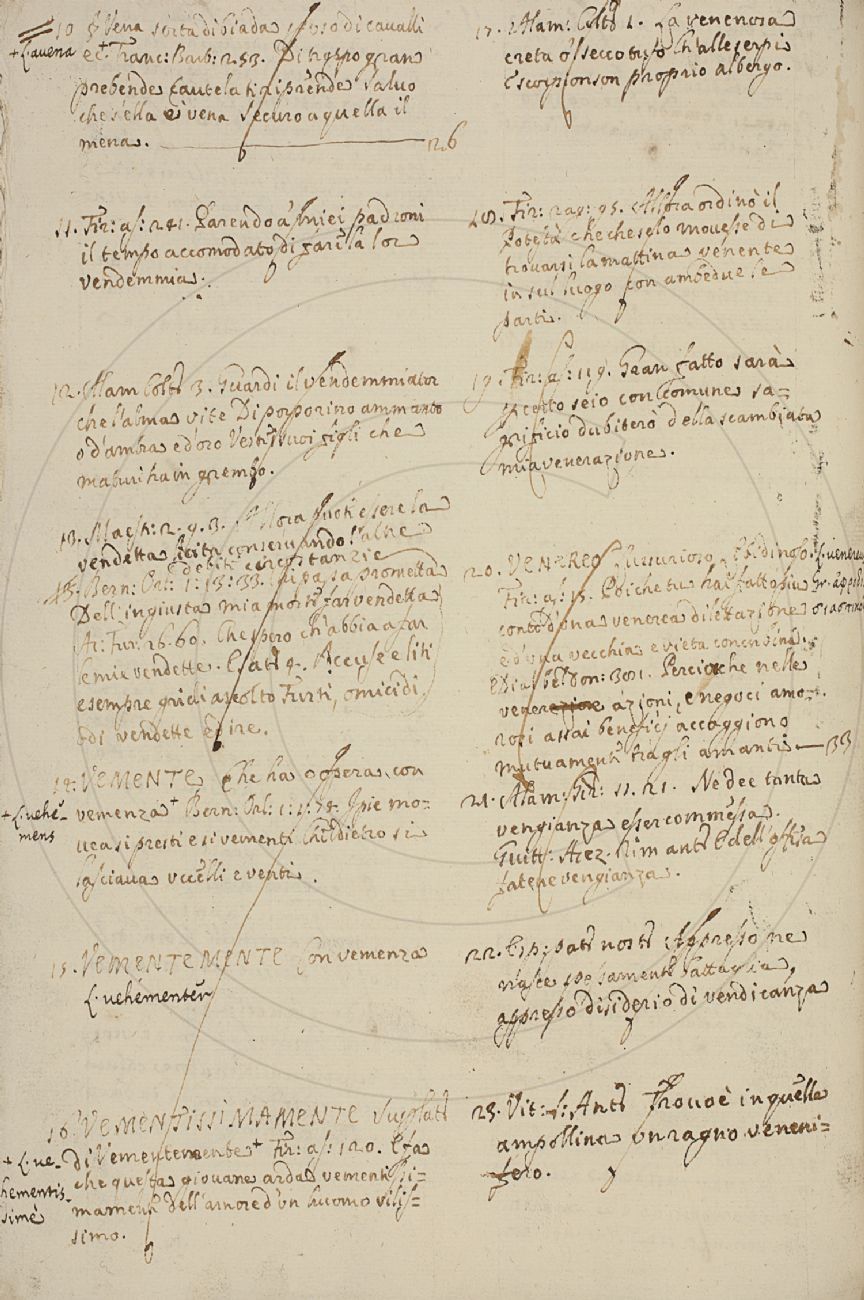 10 § Vena sorta di biada p uso di cavalli
+ L: avena
e c. Franc: Barb: 253. Di troppo gran
prebende Cautela ti riprende Salvo
che s'ella è vena Securo a quella il
mena. 26
11. Fir: as: 241. Parendo a' miei padroni
il tempo accomodato di farsi la lor
vendemmia.
12. Alam Colt: 3. Guardi il vendemmiator
che l'alma vite Di porporino ammanto
o d'ambra e d'oro Vesta i suoi figli che
maturi ha in grembo.
13. Maestr: 2. 9. 3. Allora puoti essere la
vendetta licita conservando l'altre
debite circostanzie
13. Bern: Orl: 1: 13: 33.
Dell'ingiusta mia morte far vendetta
Ar: Fur: 26. 60. Che spero ch'abbia a far
le mie vendette. E sat: 4. Accuse e liti
e sempre gridi ascolto Furti, omicidi,
odi vendette ed ire.
14. VEMENTE Che ha o opera con
+ L: uehe-
mens
vemenza+ Bern: Orl: 1: 5: 78. I pie mo-
uea si presti e si vementi Che dietro si
lasciava uccelli e venti.
15. VEMENTEMENTE Con vemenza
L: uehementer
16. VEMENTISSIMAMENTE Supplat:
+ L: ue-
hementis-
simè
di Vementemente+ Fir: as: 120. E fa
che questa giovane arda vementissi-
mamente dell'amore d'un huomo vilis-
simo.
17. Alam: Colt: 1. La venenosa
creta o'l secco tufo Ch'alle serpi
E scorpion son proprio albergo.
18. Fir: rag: 95. Allora ordinò il
Potestà che che se lo movesse di
trovarsi la mattina venente
in sul luogo con ambedue le
parti.
19. Fir: as: 119. Gran fatto sarà
se sotto seio con comune sa-
grificio dubiterò della scambiata
mia venerazione.
20. VENEREO Lussurioso, Libidinoso L: venereus
Fir: as: 15. E di che tu hai fatto piu
conto d'una venerea dilettazione
e d'una vecchia e vieta concubina.
E Dial: bel: don: 301. Percioche nelle
veneree azioni, e negoci amo-
rosi assai benefici accaggiono
mutuamente tra gli amanti 33
21. Alam: Gir: 11. 21. Ne dee tanta
vengianza esser commessa.
Guitt: Arez. Rim ant: E dell'offesa
fatene vengianza.
22. Esp: pat: nost: Appresso ne
nasce spessamente battaglia,
appresso disiderio di vendicanza
23. Vit: S: Ant: Trovoè in quella
ampollina un ragno veneni-
fero.